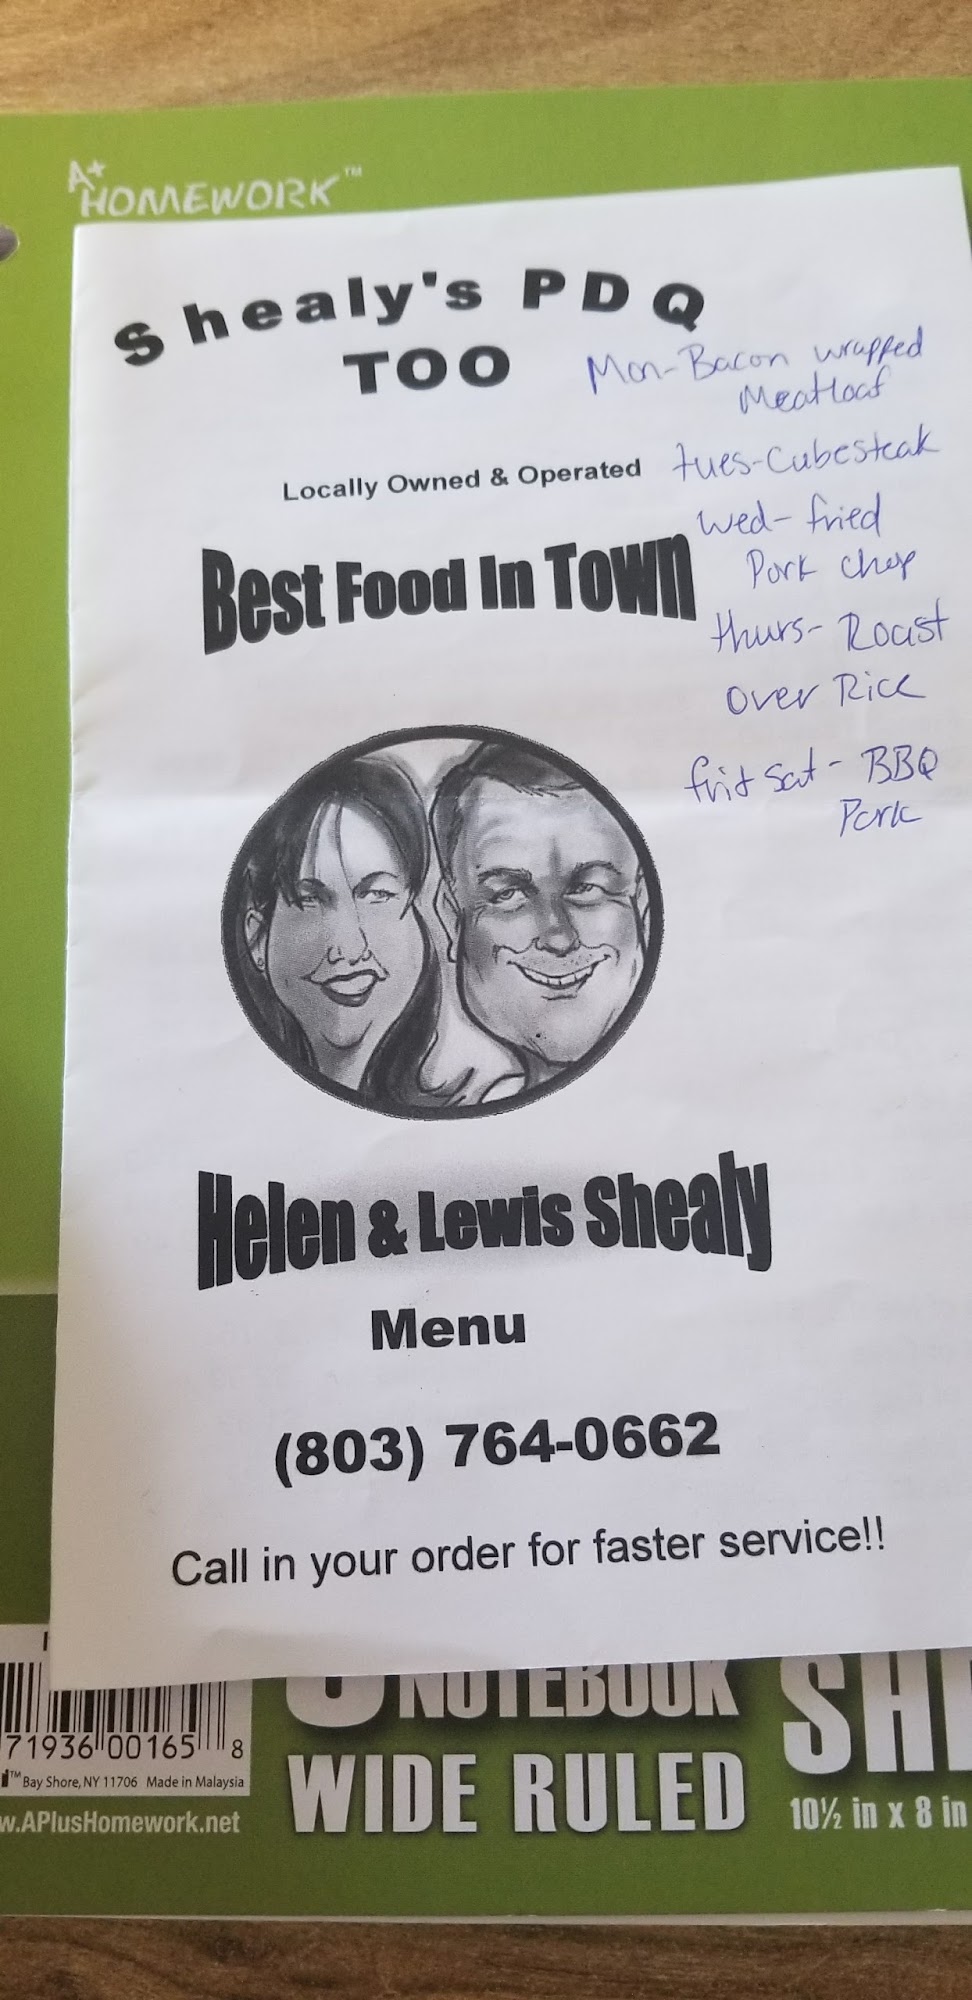 A+
HOMEWORK™
Shealy's PDQ
TOO
Mon-Bacon wrapped
Meatloaf
Locally Owned & Operated
tues-Cubesteak
Best Food In Town
wed- fried
Pork chop
thurs- Roast
over Rice
fri + Sat - BBQ
Pork
Helen & Lewis Shealy
Menu
(803) 764-0662
Call in your order for faster service!!
NOTEBOOK
WIDE RULED
10½ in x 8 in
71936 00165 8
™ Bay Shore, NY 11706 Made in Malaysia
w.APlusHomework.net